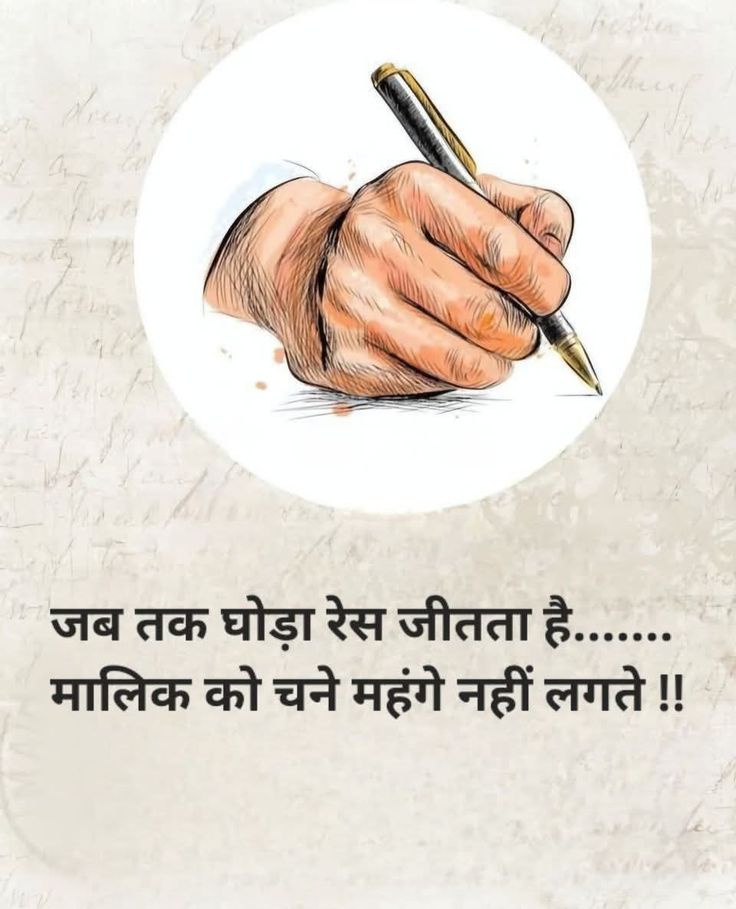 जब तक घोड़ा रेस जीतता है.......
मालिक को चने महंगे नहीं लगते !!